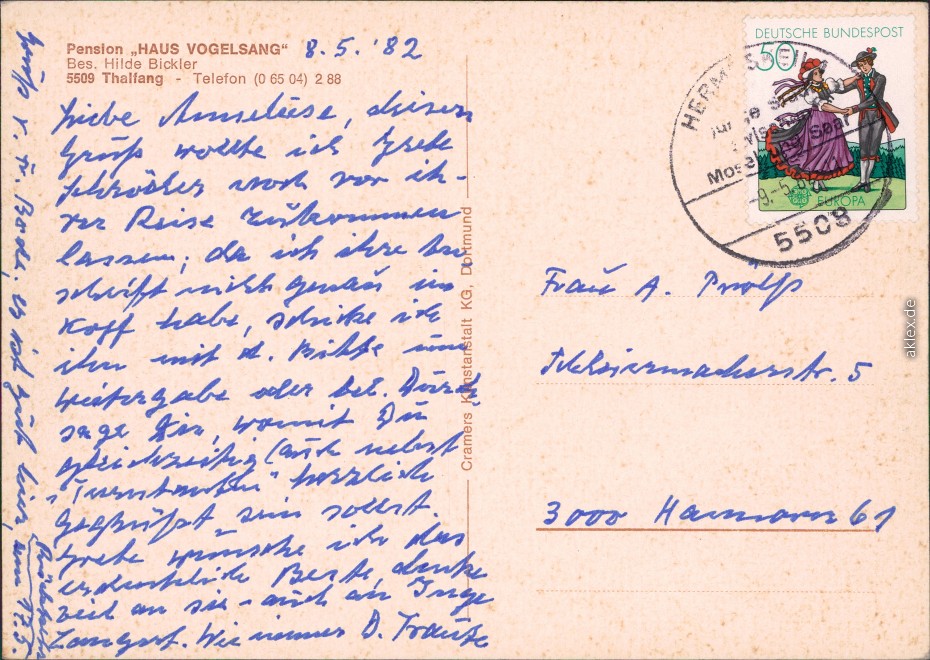 Pension „HAUS VOGELSANG“ 8.5.'82
Bes. Hilde Bickler
5509 Thalfang - Telefon (0 65 04) 2 88
Liebe Anneliese, diesen
Gruß wollte ich Grete
Schröder noch vor ih-
rer Reise zukommen
lassen; da ich ihre An-
schrift nicht genau im
Kopf habe, schicke ich
ihn mit d. Bitte um
Weitergabe oder tel. Durch
sage Dir, womit Du
gleichzeitig (auch nebst
herzlich
gegrüßt sein sollst.
Grete wünsche ich das
erdenklich Beste, denke
viel an sie - auch an Inge
Langrot. Wie immer D. Traute
Gruß v. Fr. Bode. Es ist gut hier,
Rückkehr
am 17.5.
Cramers Kunstanstalt KG, Dortmund
DEUTSCHE BUNDESPOST
50
EUROPA
HERMESKEIL 1
Mosel und Saar
5508
Frau A. Prölß
Schleiermacherstr. 5
3000 Hannover 61
aklex.de